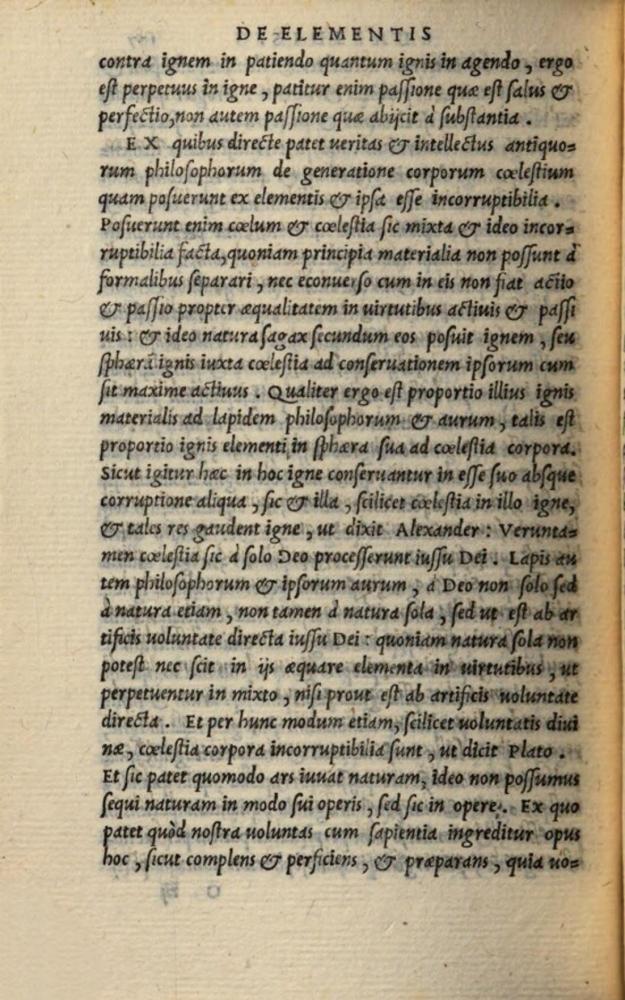 DE ELEMENTIS
contra ignem in patiendo quantum ignis in agendo, ergo
est perpetuus in igne, patitur enim passione quæ est salus &
perfectio, non autem passione quæ abijcit à substantia.
EX quibus directe patet ueritas & intellectus antiquo=
rum philosophorum de generatione corporum cœlestium
quam posuerunt ex elementis & ipsa esse incorruptibilia.
Posuerunt enim cœlum & cœlestia sic mixta & ideo incor=
ruptibilia facta, quoniam principia materialia non possunt à
formalibus separari, nec econuerso cum in eis non fiat actio
& passio propter æqualitatem in uirtutibus actiuis & passi
uis: & ideo natura sagax secundum eos posuit ignem, seu
sphærā ignis iuxta cœlestia ad conseruationem ipsorum cum
sit maxime actiuus. Qualiter ergo est proportio illius ignis
materialis ad lapidem philosophorum & aurum, talis est
proportio ignis elementi in sphæra sua ad cœlestia corpora.
Sicut igitur hæc in hoc igne conseruantur in esse suo absque
corruptione aliqua, sic & illa, scilicet cœlestia in illo igne,
& tales res gaudent igne, ut dixit Alexander: Verunta=
men cœlestia sic à solo Deo processerunt iussu Dei. Lapis au
tem philosophorum & ipsorum aurum, à Deo non solo sed
à natura etiam, non tamen à natura sola, sed ut est ab ar
tificis uoluntate directa iussu Dei: quoniam natura sola non
potest nec scit in ijs æquare elementa in uirtutibus, ut
perpetuentur in mixto, nisi prout est ab artificis uoluntate
directa. Et per hunc modum etiam, scilicet uoluntatis diui
næ, cœlestia corpora incorruptibilia sunt, ut dicit Plato.
Et sic patet quomodo ars iuuat naturam, ideo non possumus
sequi naturam in modo sui operis, sed sic in opere. Ex quo
patet quòd nostra uoluntas cum sapientia ingreditur opus
hoc, sicut complens & perficiens, & præparans, quia uo=